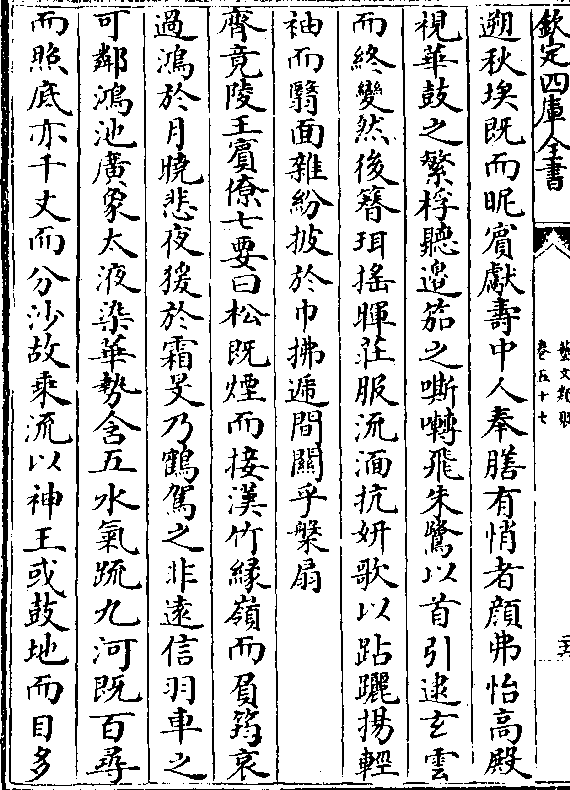 欽定四庫全書
藝文類聚
卷五十七
二六
遡秋埃既而昵賓獻壽中人奉膳有悄者顔弗怡高殿
視華鼓之繁桴聽邉笳之嘶囀飛朱鷺以首引逮𤣥雲
而終變然後簮珥搖暉莊服流湎抗妍歌以跕躧揚輕
袖而翳面雜紛披於巾拂遞間關乎槃扇
齊竟陵王賓僚七要曰松既煙而接漢竹縁嶺而負筠哀
過鴻於月曉悲夜猨於霜旻乃鶴駕之非遠信羽車之
可鄰鴻池廣象太液染華勢含五水氣疏九河既百尋
而照底亦千丈而分沙故乘流以神王或鼓地而目多